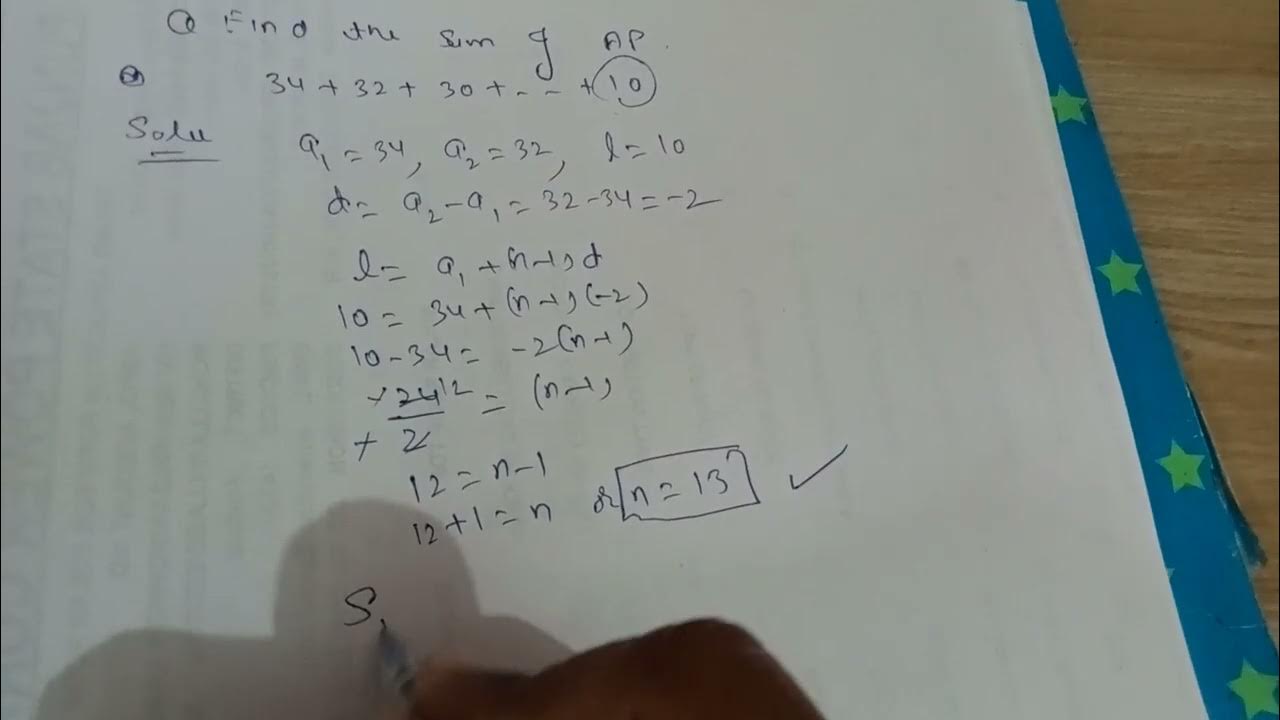 Q Find the sum of AP.
34 + 32 + 30 + - - + 10
Solu
a₁ = 34, a₂ = 32, l = 10
d = a₂ - a₁ = 32 - 34 = -2
l = a₁ + (n-1)d
10 = 34 + (n-1)(-2)
10 - 34 = -2(n-1)
-24/-2 12 = (n-1)
12 = n - 1
12 + 1 = n or n = 13 ✓
S